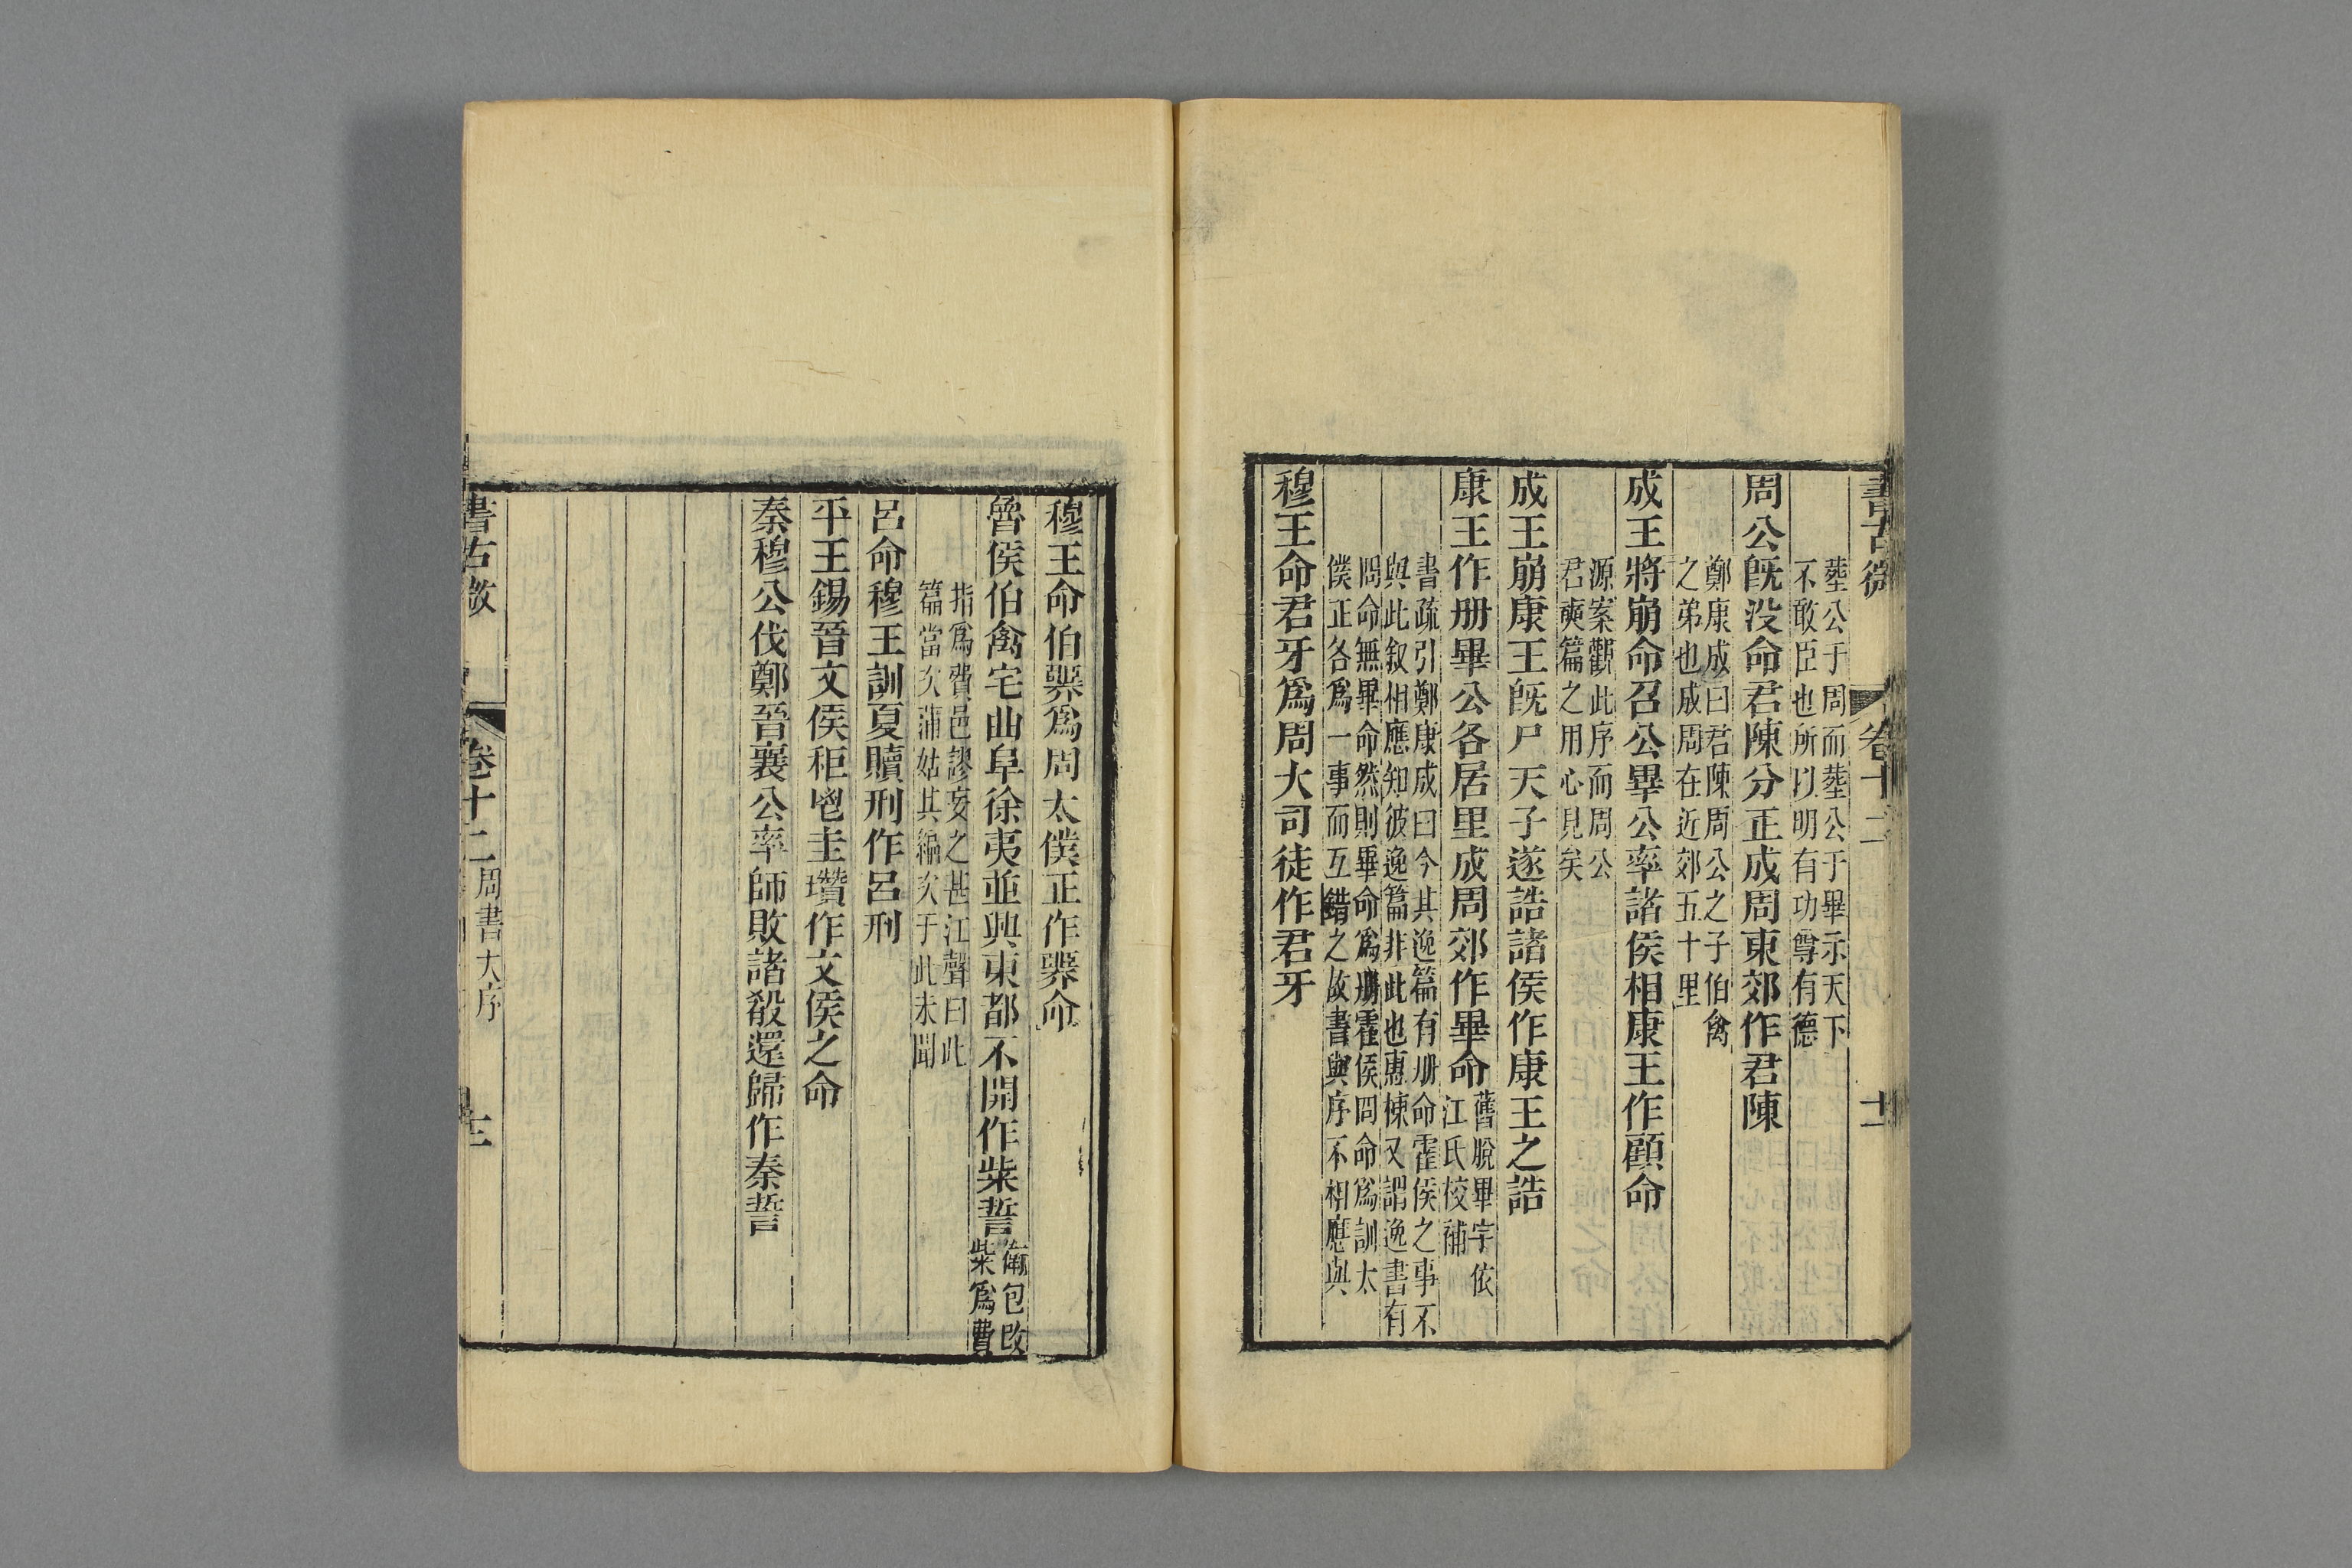 書古微
卷十二
十二
葬公于周而葬公于畢示天下
不敢臣也所以明有功尊有德
周公旣没命君陳分正成周東郊作君陳
鄭康成曰君陳周公之子伯禽
之弟也成周在近郊五十里
成王將崩命召公畢公率諸侯相康王作顧命
源案觀此序而周公
君奭篇之用心見矣
成王崩康王旣尸天子遂誥諸侯作康王之誥
康王作册畢公各居里成周郊作畢命
舊脫畢字依
江氏校補
書疏引鄭康成曰今其逸篇有册命霍侯之事不
與此敘相應知彼逸篇非此也惠棟又謂逸書有
冏命無畢命然則畢命爲册霍侯冏命爲訓太
僕正各爲一事而互錯之故書與序不相應與
穆王命君牙爲周大司徒作君牙
穆王命伯臩爲周太僕正作臩命
魯侯伯禽宅曲阜徐夷並興東都不開作柴誓
衞包改
柴爲費
指爲費邑謬妄之甚江聲曰此
篇當次蒲姑其編次于此未聞
呂命穆王訓夏贖刑作呂刑
平王錫晉文侯秬鬯圭瓚作文侯之命
秦穆公伐鄭晉襄公率師敗諸殽還歸作秦誓
書古微
卷十二
周書大序